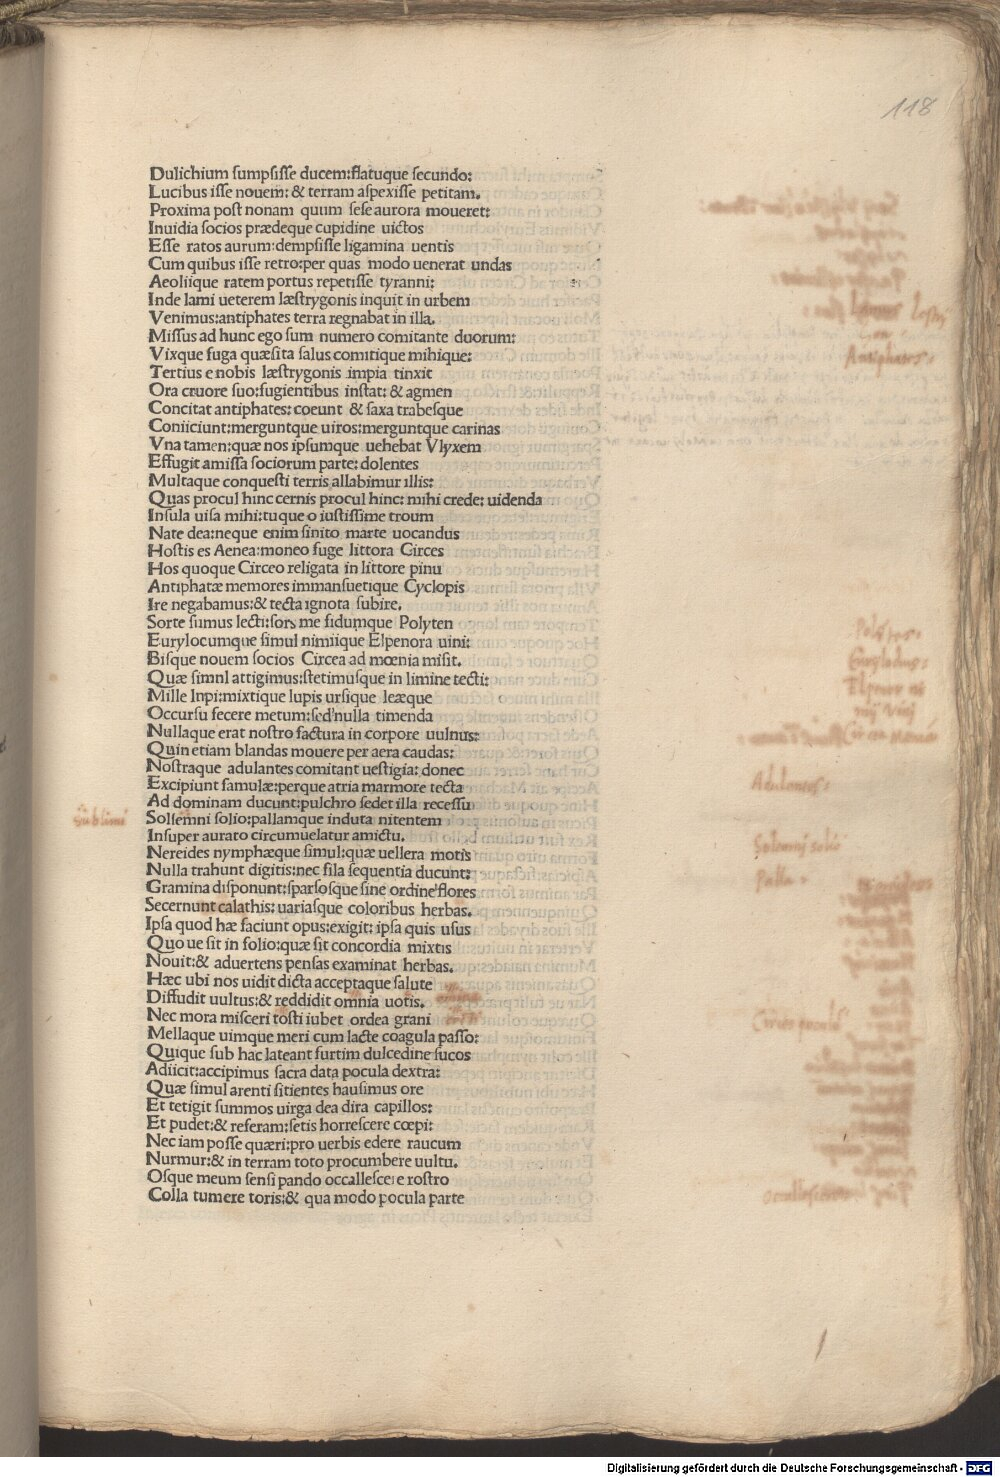 118
Dulichium sumpsisse ducem:flatuque secundo:
Lucibus isse nouem: & terram aspexisse petitam.
Proxima post nonam quum sese aurora moueret:
Inuidia socios prædeque cupidine uictos
Esse ratos aurum:dempsisse ligamina uentis
Cum quibus isse retro:per quas modo uenerat undas
Aeoliique ratem portus repetisse tyranni:
Inde lami ueterem læstrygonis inquit in urbem
Venimus:antiphates terra regnabat in illa.
Missus ad hunc ego sum numero comitante duorum:
Vixque fuga quæsita salus comitique mihique:
Tertius e nobis læstrygonis impia tinxit
Antiphates:
Ora cruore suo:fugientibus instat: & agmen
Concitat antiphates: coeunt & saxa trabesque
Coniiciunt:merguntque uiros:merguntque carinas
Vna tamen:quæ nos ipsumque uehebat Vlyxem
Effugit amissa sociorum parte: dolentes
Multaque conquesti terris allabimur illis:
Quas procul hinc cernis procul hinc: mihi crede: uidenda
Insula uisa mihi:tuque o iustissime troum
Nate dea:neque enim finito marte uocandus
Hostis es Aenea:moneo fuge littora Circes
Hos quoque Circeo religata in littore pinu
Antiphatæ memores immansuetique Cyclopis
Ire negabamus:& tecta ignota subire.
Sorte sumus lecti:sors me fidumque Polyten
Eurylocumque simul nimiique Elpenora uini:
Bisque novem socios Circea ad mœnia misit.
Quæ simnl attigimus:stetimusque in limine tecti:
Mille lnpi:mixtique lupis ursique leæque
Occursu fecere metum:sed nulla timenda
Nullaque erat nostro factura in corpore uulnus:
Quin etiam blandas mouere per aera caudas:
Nostraque adulantes comitant uestigia: donec
Adulantes:
Excipiunt famulæ:perque atria marmore tecta
Ad dominam ducunt:pulchro sedet illa recessu
Sublimi
Sollemni solio:pallamque induta nitentem
Solemni solio
Insuper aurato circumuelatur amictu.
Nereides nymphæque simul:quæ uellera motis
Palla
Nulla trahunt digitis:nec fila sequentia ducunt:
Gramina disponunt:sparsosque sine ordine flores
Secernunt calathis: uariasque coloribus herbas.
Ipsa quod hæ faciunt opus:exigit: ipsa quis usus
Quo ue sit in folio:quæ sit concordia mixtis
Nouit:& aduertens pensas examinat herbas.
Hæc ubi nos uidit dicta acceptaque salute
Diffudit uultus:& reddidit omnia uotis.
Nec mora misceri tosti iubet ordea grani
Mellaque uimque meri cum lacte coagula passo:
Quique sub hac lateant furtim dulcedine sucos
Adiicit:accipimus sacra data pocula dextra:
Quæ simul arenti sitientes hausimus ore
Et tetigit summos uirga dea dira capillos:
Et pudet:& referam:setis horrescere cœpi:
Nec iam posse quæri:pro uerbis edere raucum
Nurmur:& in terram toto procumbere uultu.
Osque meum sensi pando occallescere rostro
Colla tumere toris:& qua modo pocula parte
Digitalisierung gefördert durch die Deutsche Forschungsgemeinschaft - DFG